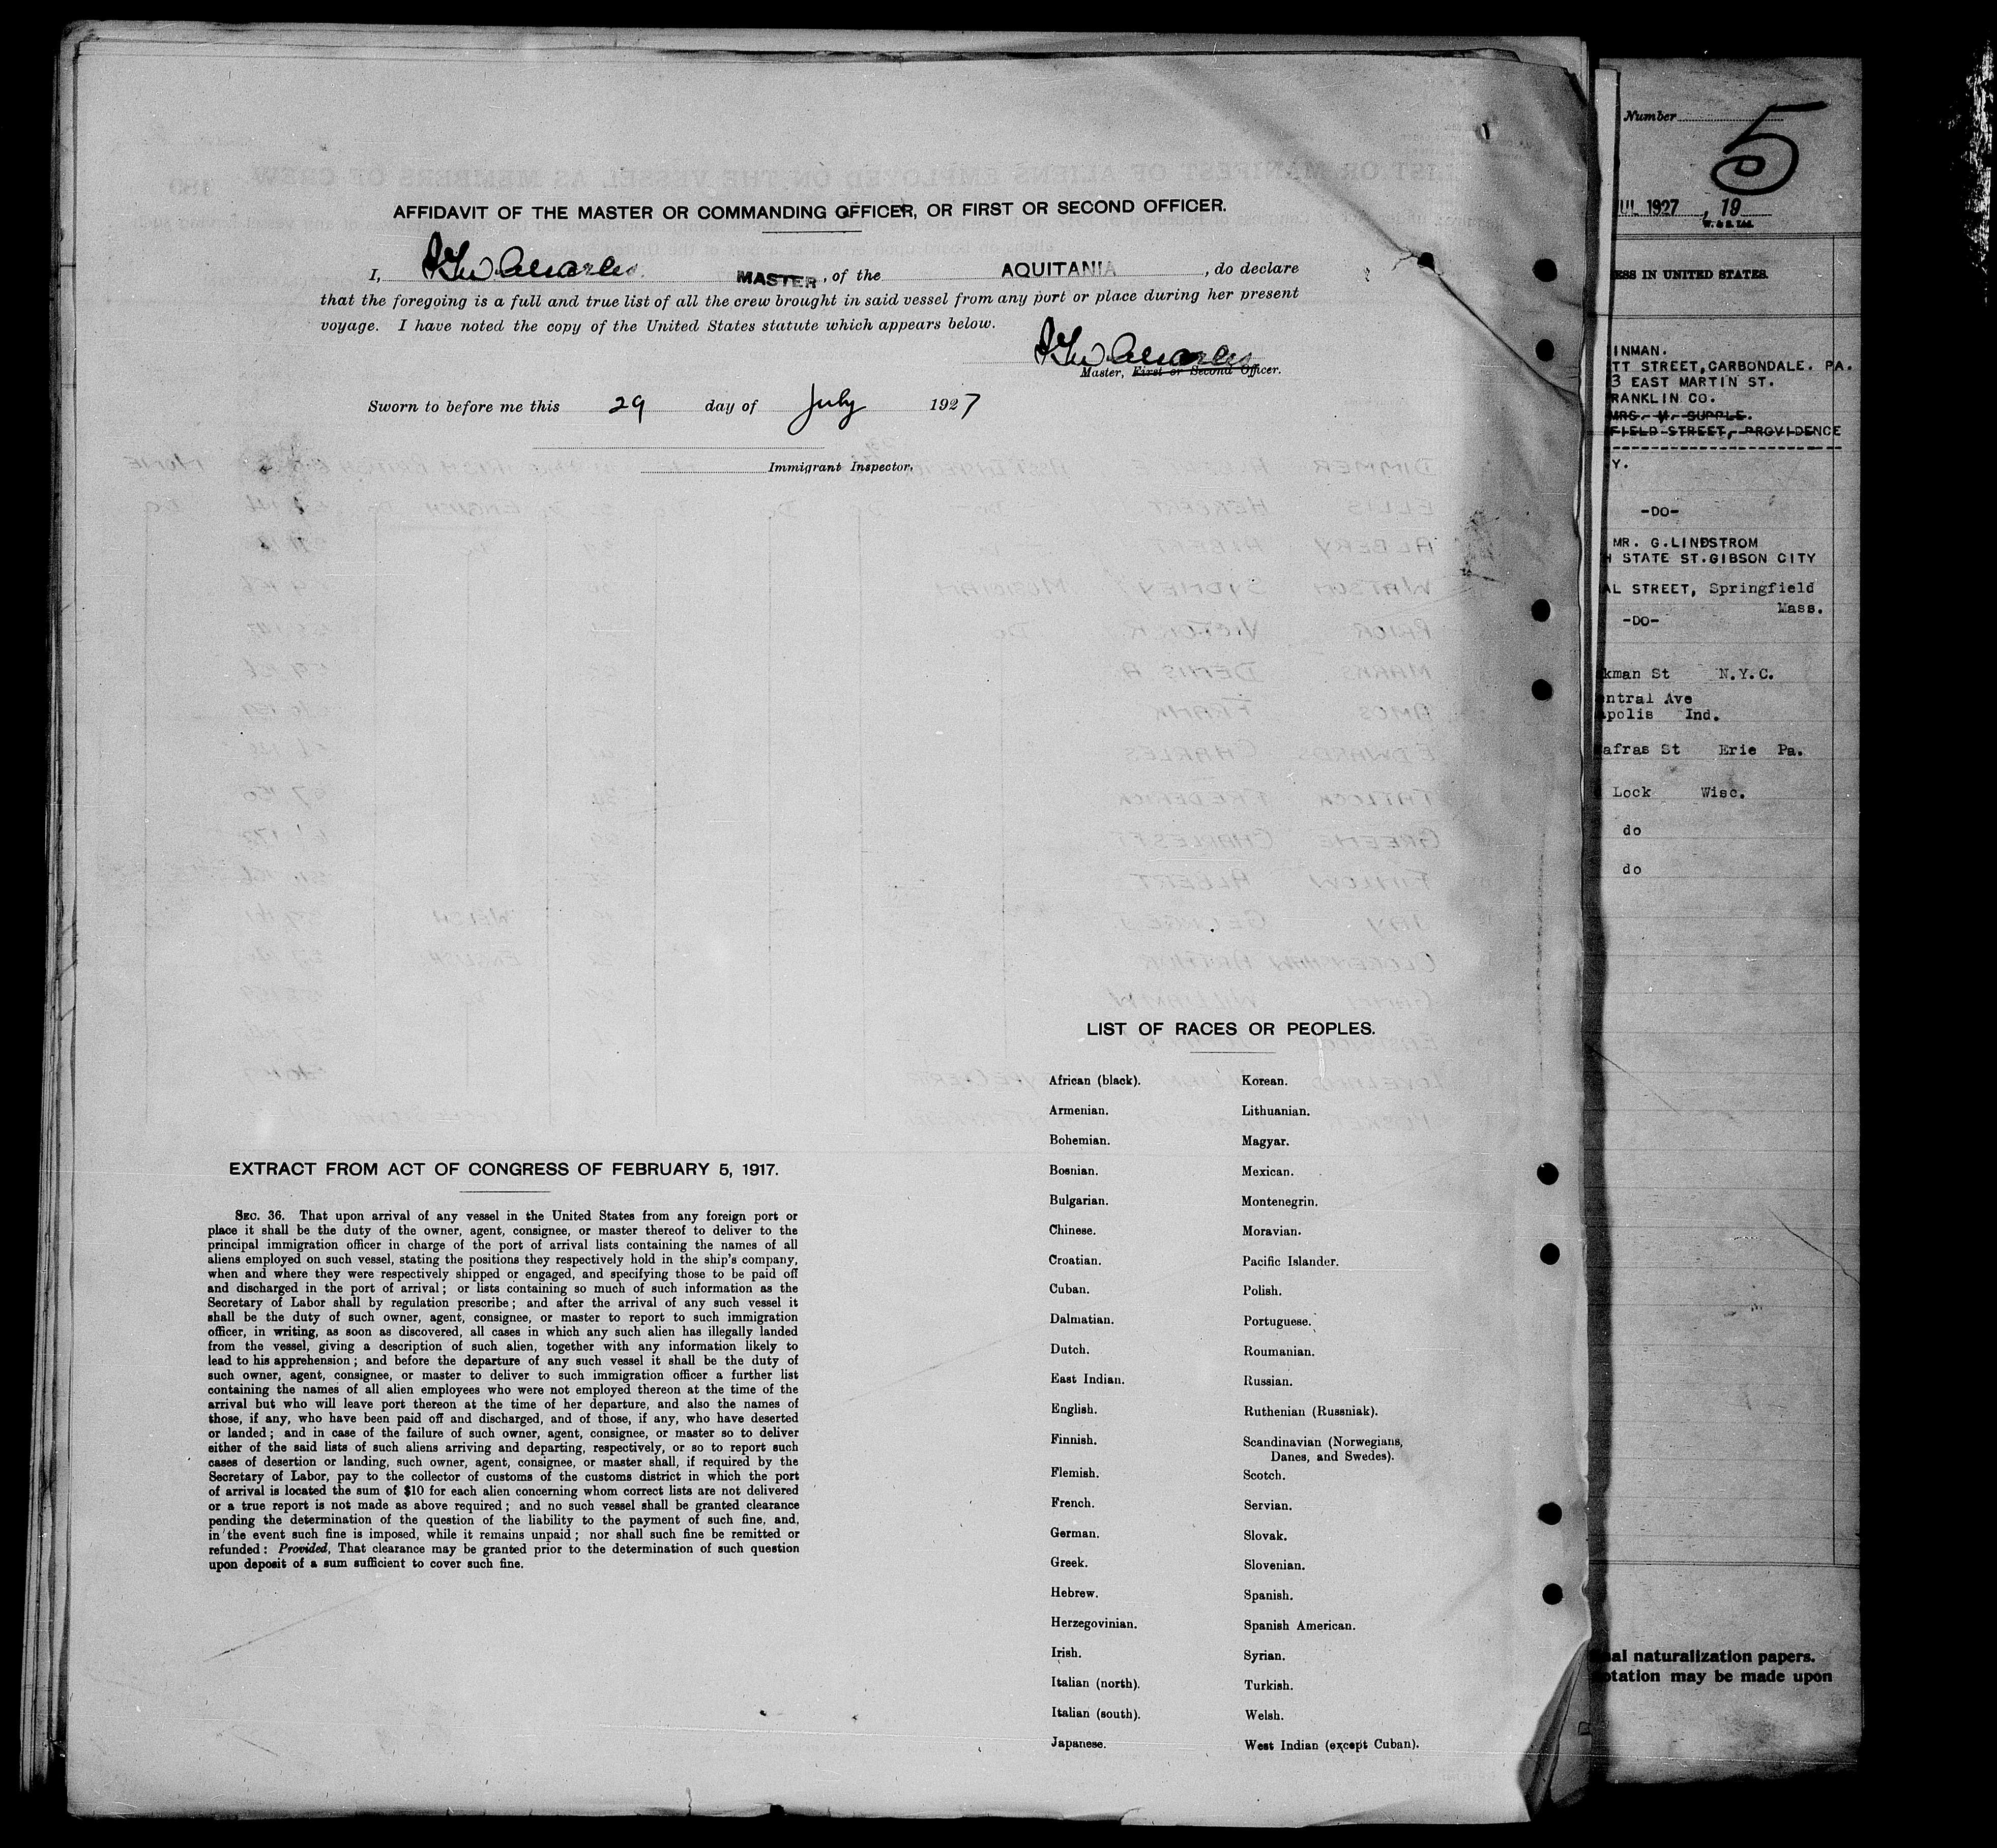 AFFIDAVIT OF THE MASTER OR COMMANDING OFFICER, OR FIRST OR SECOND OFFICER.
I, Charles MASTER, of the AQUITANIA, do declare
that the foregoing is a full and true list of all the crew brought in said vessel from any port or place during her present
voyage. I have noted the copy of the United States statute which appears below.
Charles
Master, First or Second Officer.
Sworn to before me this 29 day of July 1927
Immigrant Inspector.
EXTRACT FROM ACT OF CONGRESS OF FEBRUARY 5, 1917.
SEC. 36. That upon arrival of any vessel in the United States from any foreign port or
place it shall be the duty of the owner, agent, consignee, or master thereof to deliver to the
principal immigration officer in charge of the port of arrival lists containing the names of all
aliens employed on such vessel, stating the positions they respectively hold in the ship's company,
when and where they were respectively shipped or engaged, and specifying those to be paid off
and discharged in the port of arrival; or lists containing so much of such information as the
Secretary of Labor shall by regulation prescribe; and after the arrival of any such vessel it
shall be the duty of such owner, agent, consignee, or master to report to such immigration
officer, in writing, as soon as discovered, all cases in which any such alien has illegally landed
from the vessel, giving a description of such alien, together with any information likely to
lead to his apprehension; and before the departure of any such vessel it shall be the duty of
such owner, agent, consignee, or master to deliver to such immigration officer a further list
containing the names of all alien employees who were not employed thereon at the time of the
arrival but who will leave port thereon at the time of her departure, and also the names of
those, if any, who have been paid off and discharged, and of those, if any, who have deserted
or landed; and in case of the failure of such owner, agent, consignee, or master so to deliver
either of the said lists of such aliens arriving and departing, respectively, or so to report such
cases of desertion or landing, such owner, agent, consignee, or master shall, if required by the
Secretary of Labor, pay to the collector of customs of the customs district in which the port
of arrival is located the sum of $10 for each alien concerning whom correct lists are not delivered
or a true report is not made as above required; and no such vessel shall be granted clearance
pending the determination of the question of the liability to the payment of such fine, and,
in the event such fine is imposed, while it remains unpaid; nor shall such fine be remitted or
refunded: Provided, That clearance may be granted prior to the determination of such question
upon deposit of a sum sufficient to cover such fine.
LIST OF RACES OR PEOPLES.
African (black).
Armenian.
Bohemian.
Bosnian.
Bulgarian.
Chinese.
Croatian.
Cuban.
Dalmatian.
Dutch.
East Indian.
English.
Finnish.
Flemish.
French.
German.
Greek.
Hebrew.
Herzegovinian.
Irish.
Italian (north).
Italian (south).
Japanese.
Korean.
Lithuanian.
Magyar.
Mexican.
Montenegrin.
Moravian.
Pacific Islander.
Polish.
Portuguese.
Roumanian.
Russian.
Ruthenian (Russniak).
Scandinavian (Norwegians,
Danes, and Swedes).
Scotch.
Servian.
Slovak.
Slovenian.
Spanish.
Spanish American.
Syrian.
Turkish.
Welsh.
West Indian (except Cuban).
Number 5
UL 1927, 19
W. & S. Ltd.
ESS IN UNITED STATES.
INMAN.
TT STREET, CARBONDALE. PA.
3 EAST MARTIN ST.
RANKLIN CO.
MRS. M. SUPPLE.
FIELD STREET, PROVIDENCE
Y.
-DO-
MR. G. LINDSTROM
H STATE ST. GIBSON CITY
AL STREET, Springfield
Mass.
-DO-
kman St N.Y.C.
ntral Ave
apolis Ind.
afras St Erie Pa.
Lock Wisc.
do
do
nal naturalization papers.
otation may be made upon